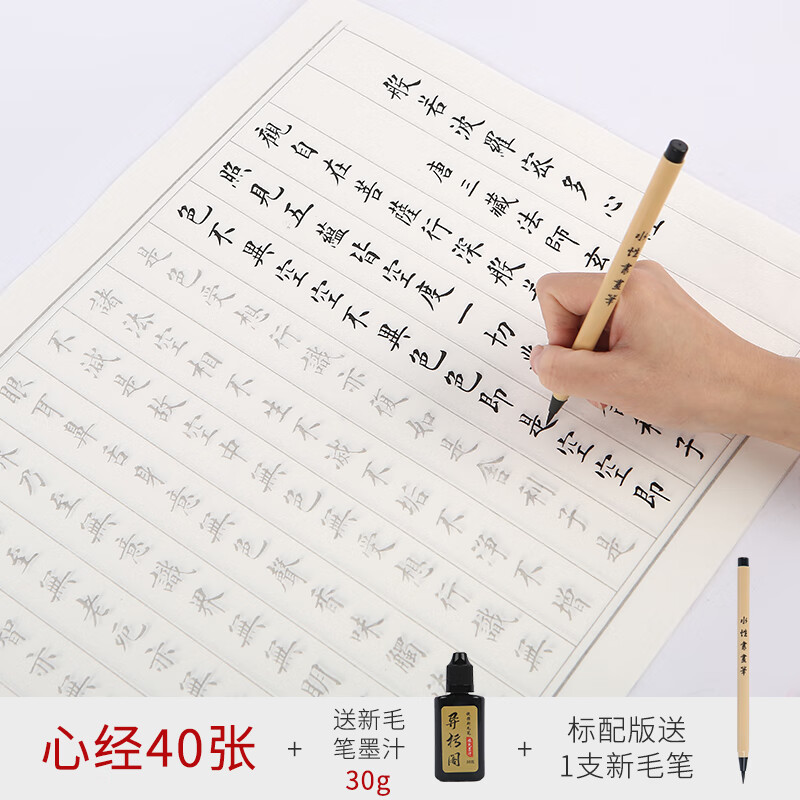 般若波羅宻多心
唐三藏法師玄
觀自在菩薩行深般
照見五蘊皆空度一切 利子
色不異空空不異色色即是空空即
是色受想行識亦復如是舍利子是
諸法空相不生不滅不垢不淨不增
不減是故空中無色無受想行識無
眼耳鼻舌身意無色聲香味觸
乃至無意識界無無明
至無老死亦
智亦
水性書畫筆
心经40张
+
送新毛
笔墨汁
30g
+
标配版送
1支新毛笔
水性書畫筆